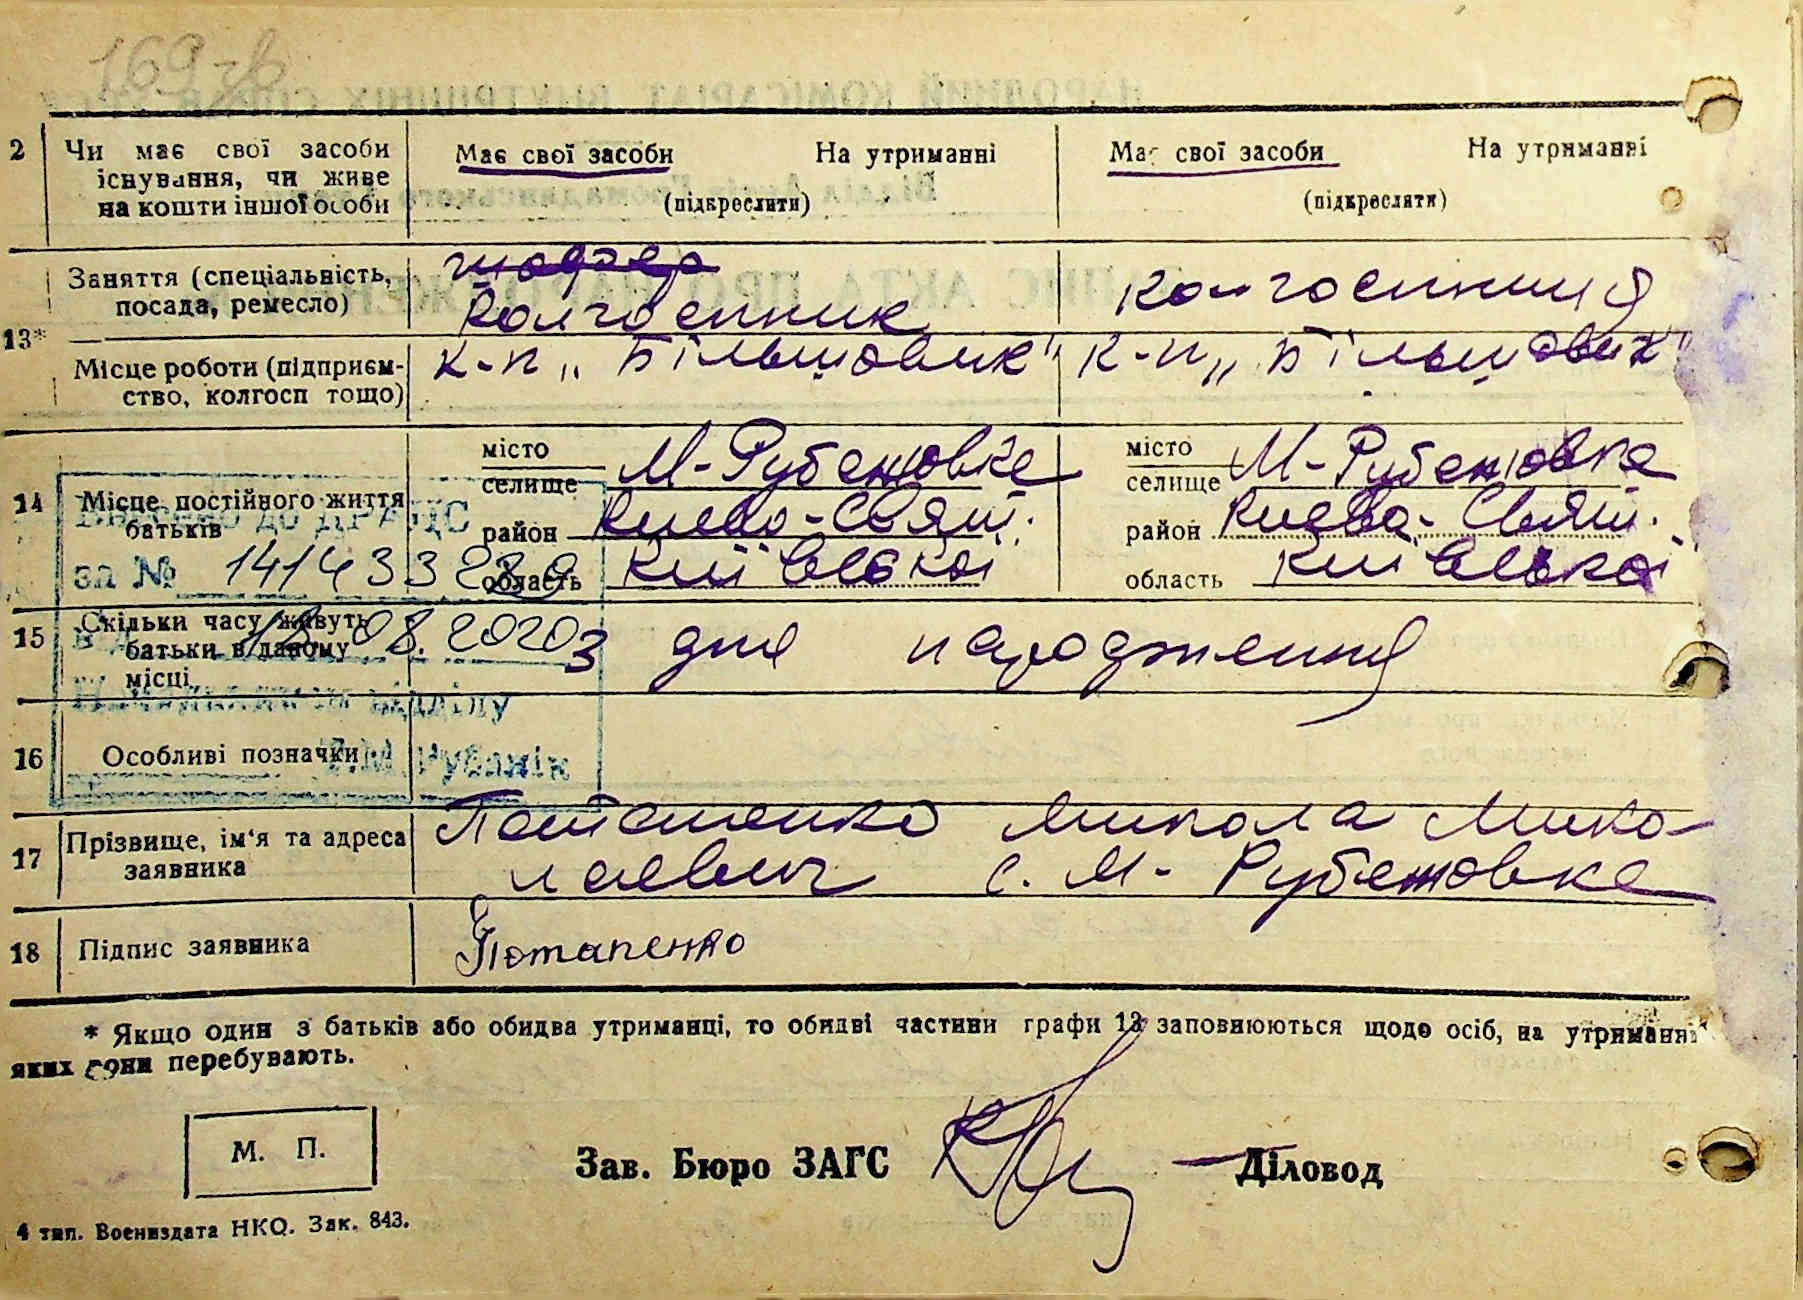 169-зв
2 Чи має свої засоби існування, чи живе на кошти іншої особи
Має свої засоби На утриманні Має свої засоби На утриманні
(підкреслити) (підкреслити)
13* Заняття (спеціальність, посада, ремесло)
Колгоспник Колгоспниця
Місце роботи (підприємство, колгосп тощо)
к-п „Більшовик" к-п „Більшовик"
14 Місце постійного життя батьків
місто селище М-Рубежовка місто селище М-Рубежовка
район Києво-Свят. район Києво-Свят.
область Київської область Київської
Внесено до ДРАЦС
за № 14143323
18.08.2020
15 Скільки часу живуть батьки в даному місці
З дня народження
відділу
Рубанік
16 Особливі позначки
17 Прізвище, ім'я та адреса заявника
Потапенко Микола Мико-
лаевич с. М-Рубежовка
18 Підпис заявника Потапенко
* Якщо один з батьків або обидва утриманці, то обидві частини графи 13 заповнюються щодо осіб, на утриманні
яких вони перебувають.
М. П.
Зав. Бюро ЗАГС Діловод
4 тип. Воениздата НКО. Зак. 843.